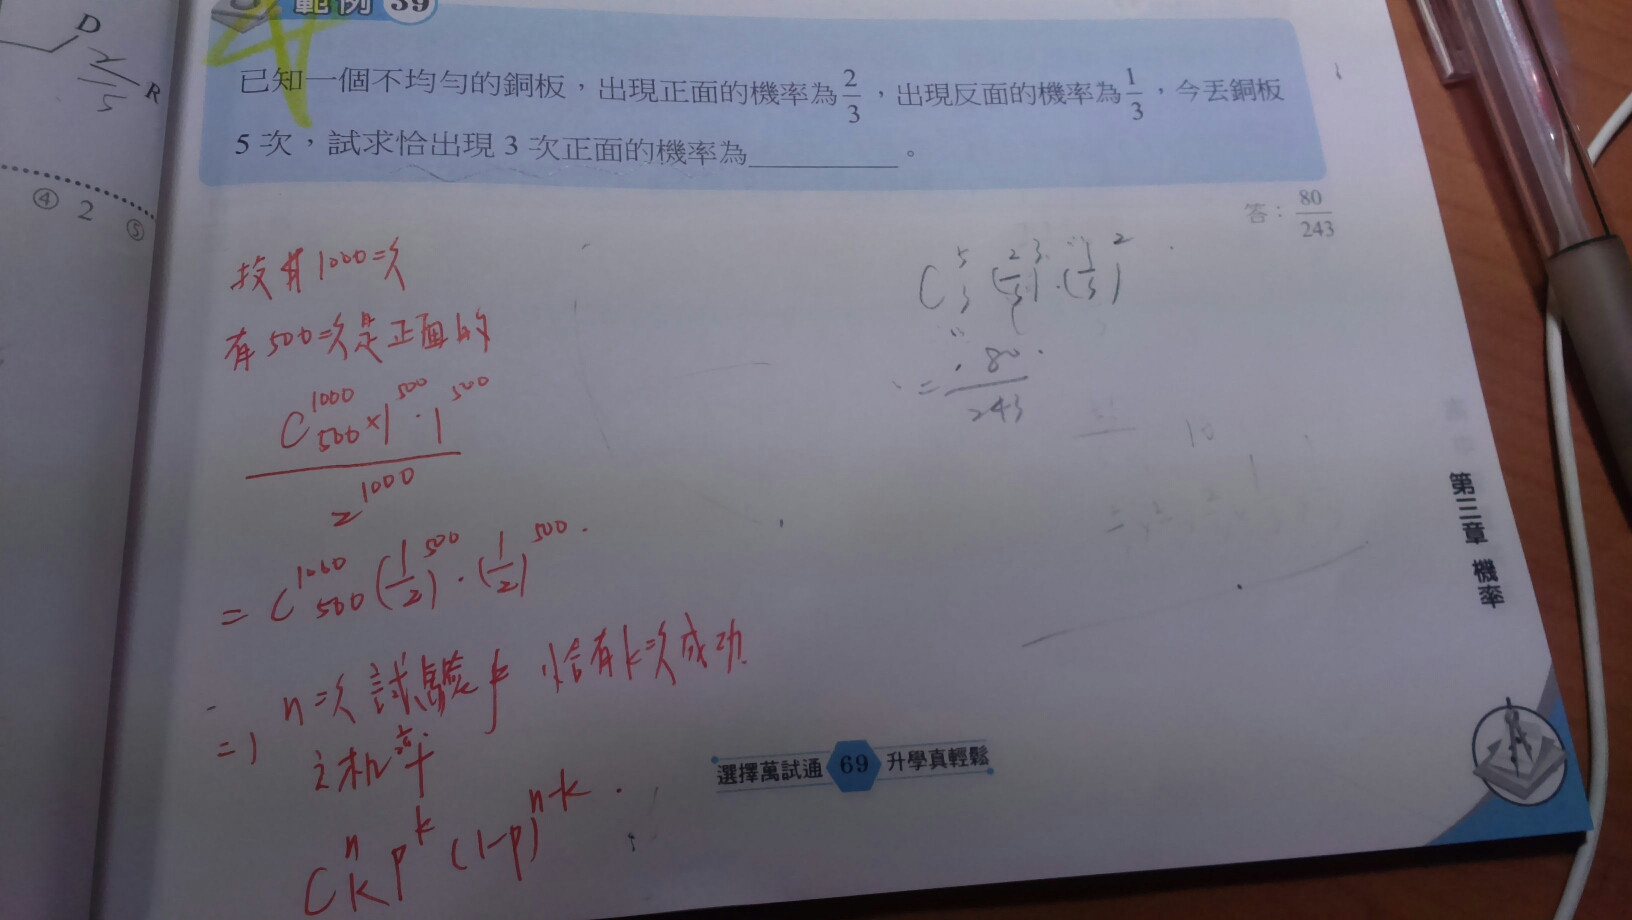 D
2/5
R
④ 2 ⑤
範例 39
已知一個不均勻的銅板，出現正面的機率為2/3，出現反面的機率為1/3，今丟銅板
5 次，試求恰出現 3 次正面的機率為＿＿＿＿。
答：80/243
投 1000次
有500次是正面的
C 1000 500 ×1^500 · 1^500
2^1000
= C 1000 500 (1/2)^500 · (1/2)^500 .
=) n次試驗中 恰有k次成功
之机率
C n k p^k (1-p)^n-k .
C 5 3 (2/3)^3 · (1/3)^2
= 80/243
10
第三章 機率
選擇萬試通 69 升學真輕鬆